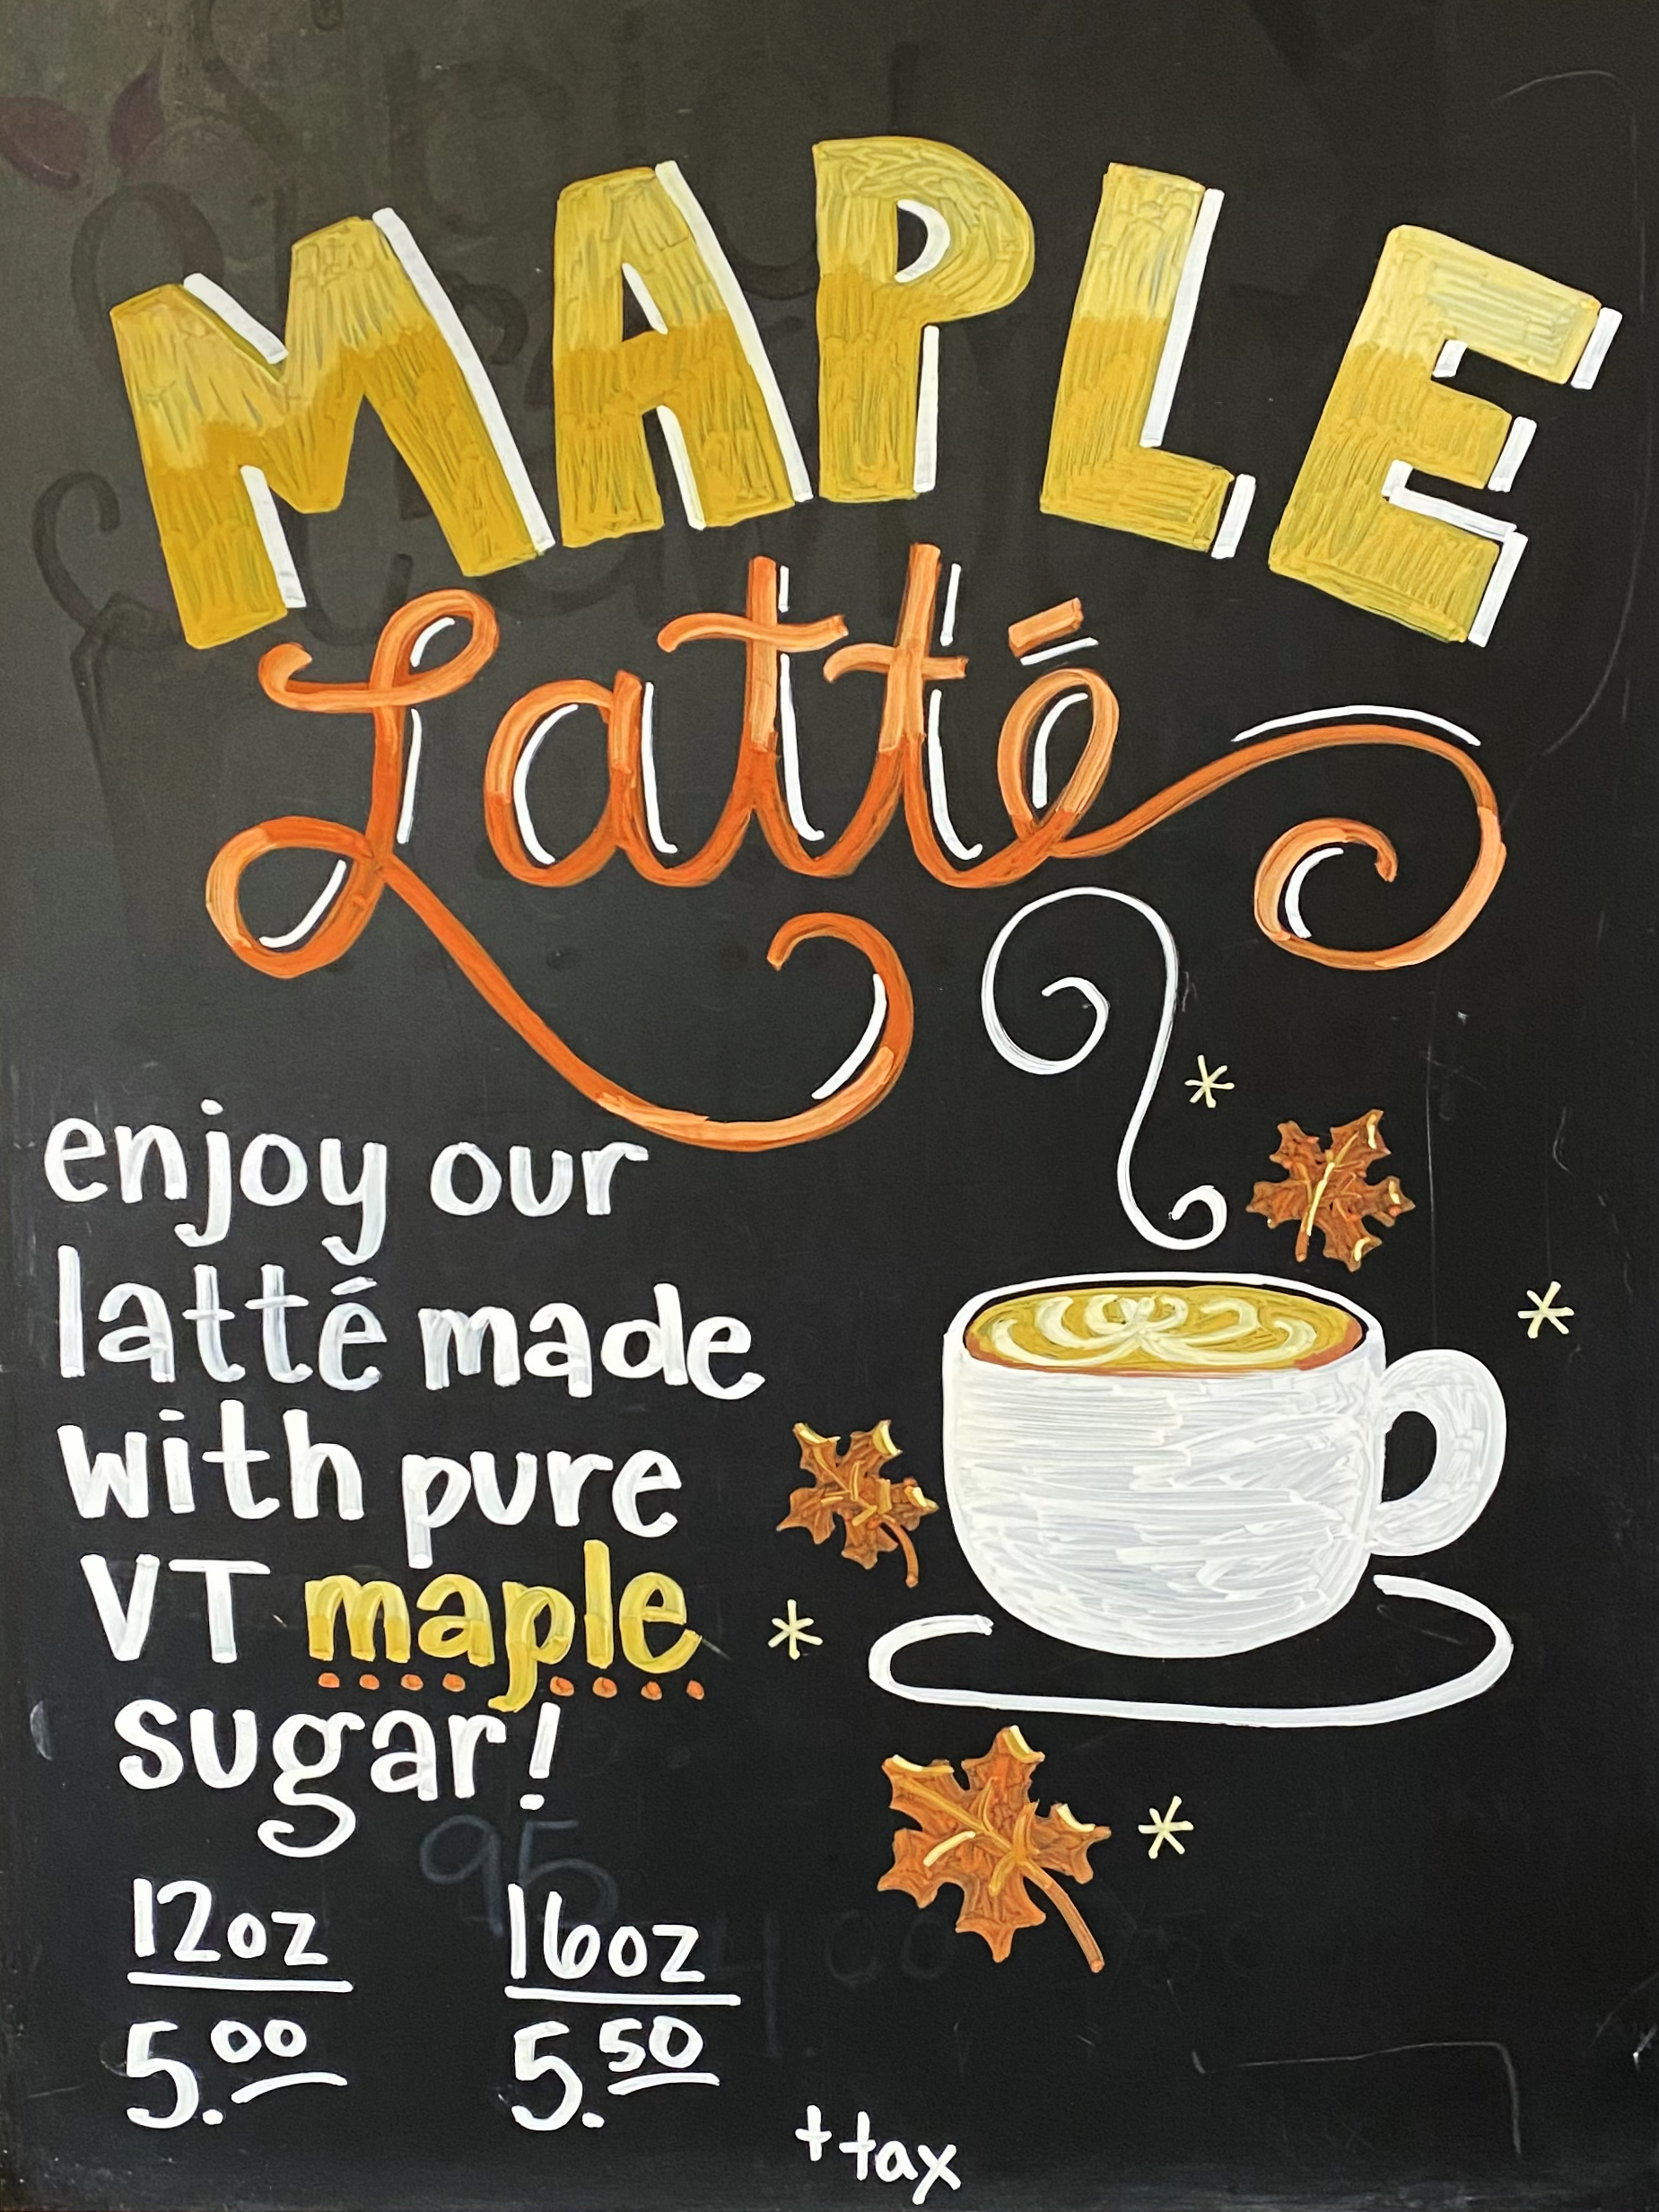 MAPLE
Latté
enjoy our
latté made
with pure
VT maple
sugar!
95
12oz 16oz
5.00 5.50
+tax